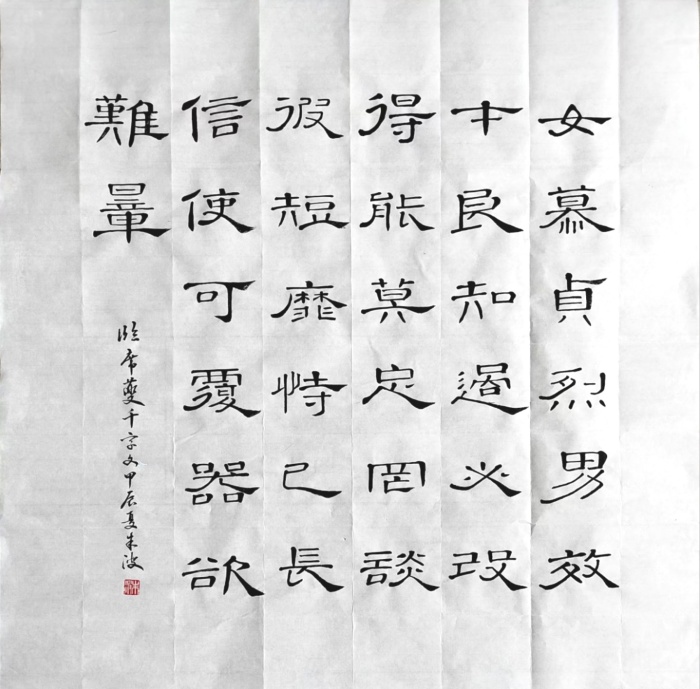 女慕貞烈男效
才良知過必改
得能莫忘罔談
彼短靡恃己長
信使可覆器欲
難量
臨席夔千字文甲辰夏朱波